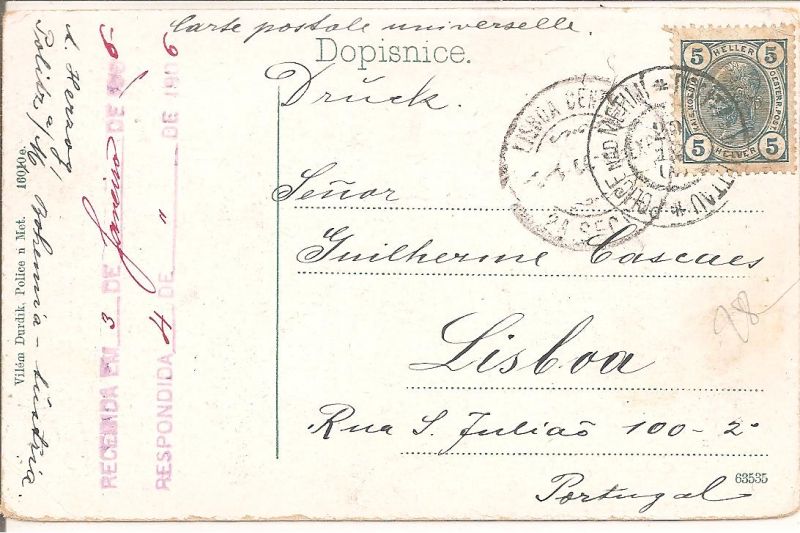 Carte postale universelle.
Dopisnice.
Druck.
Señor
Guilherme Cascaes
Lisboa
Rua S. Julião 100-2º
Portugal
63535
28
5 HELLER 5
5 HELLER 5
LISBOA CENTRAL
2A SEC
POLICE NAD METUJI
RECEBIDA EM 3 DE Janeiro DE 1906
RESPONDIDA 4 DE " DE 1906
L. Herzog,
Politz a/M, Bohemia - Austria.
Vilém Durdík, Police n Met. 16010e.